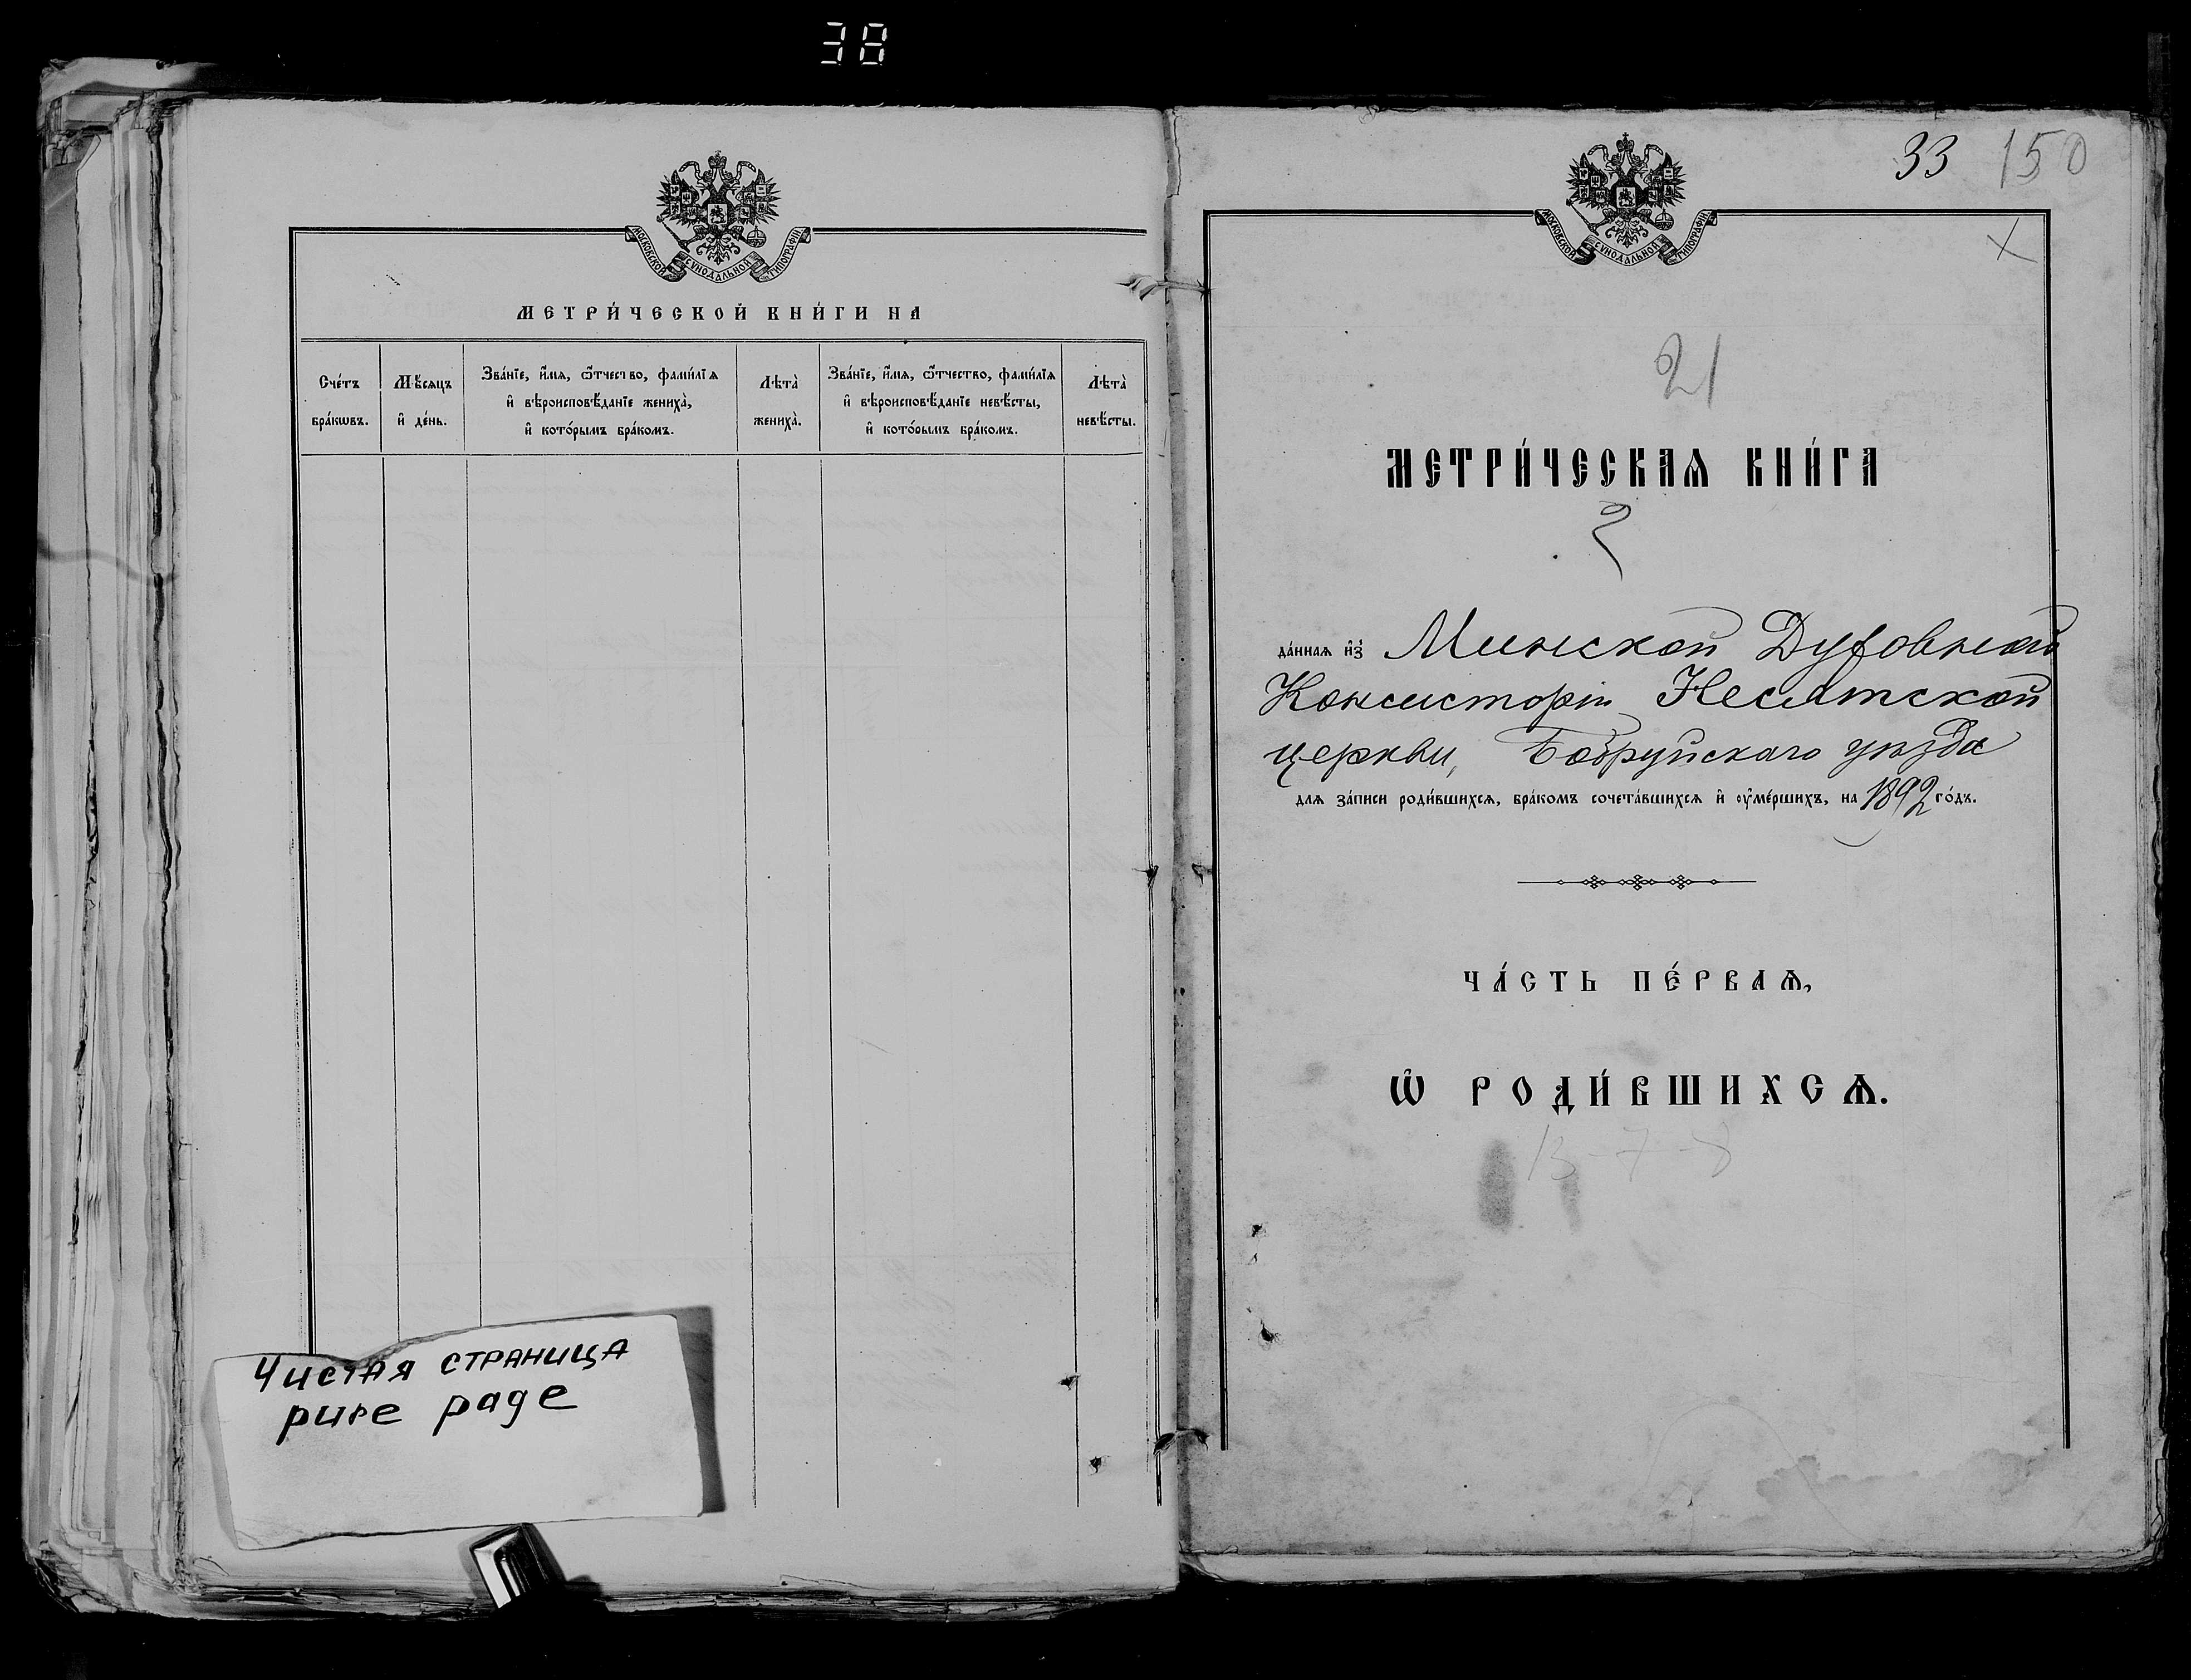 38
МОСКОВСКОЙ СѴНОДАЛЬНОЙ ТИПОГРАФІИ
МЕТРИ́ЧЕСКОЙ КНИ́ГИ НА
Сче́тъ бра́кѡвъ.
Мѣ́сяцъ и҆ де́нь.
Зва́нїе, и҆́мѧ, ѻ҆́тчество, фами́лїѧ
и҆ вѣроисповѣ́данїе жениха̀,
и҆ кото́рымъ бра́комъ.
Лѣта̀ жениха̀.
Зва́нїе, и҆́мѧ, ѻ҆́тчество, фами́лїѧ
и҆ вѣроисповѣ́данїе невѣ́сты,
и҆ кото́рымъ бра́комъ.
Лѣта̀ невѣ́сты.
Чистая страница
pure page
33 150
МОСКОВСКОЙ СѴНОДАЛЬНОЙ ТИПОГРАФІИ
21
МЕТРИ́ЧЕСКАѦ КНИ́ГА
да́ннаѧ и҆з̾ Минской Духовной
Консисторіи Несятской
церкви, Бобруйскаго уѣзда
длѧ за́писи роди́вшихсѧ, бра́комъ сочета́вшихсѧ и҆ ᲂу҆ме́ршихъ, на 1892 го́дъ.
ЧА́СТЬ ПЕ́РВАѦ,
Ѡ҆ РОДИ́ВШИХСѦ.